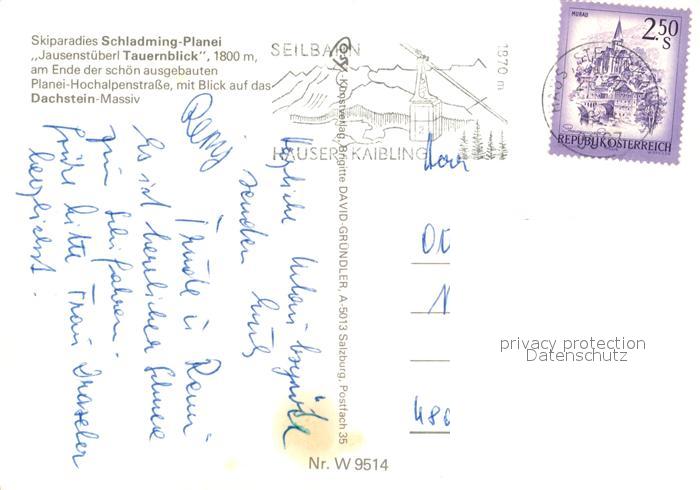 Skiparadies Schladming-Planei
„Jausenstüberl Tauernblick", 1800 m,
am Ende der schön ausgebauten
Planei-Hochalpenstraße, mit Blick auf das
Dachstein-Massiv
SEILBAHN
1870 m
HAUSER KAIBLING
MURAU
2.50
S
REPUBLIK ÖSTERREICH
Kunstverlag Brigitte DAVID-GRÜNDLER, A-5013 Salzburg, Postfach 35
Herzliche Urlaubsgrüße
senden Euch
Trude u. Remi
Es ist herrlicher Schnee
zum Schifahren.
Grüße bitte Frau
herzlichst.
Remy
Herr
486
privacy protection
Datenschutz
Nr. W 9514